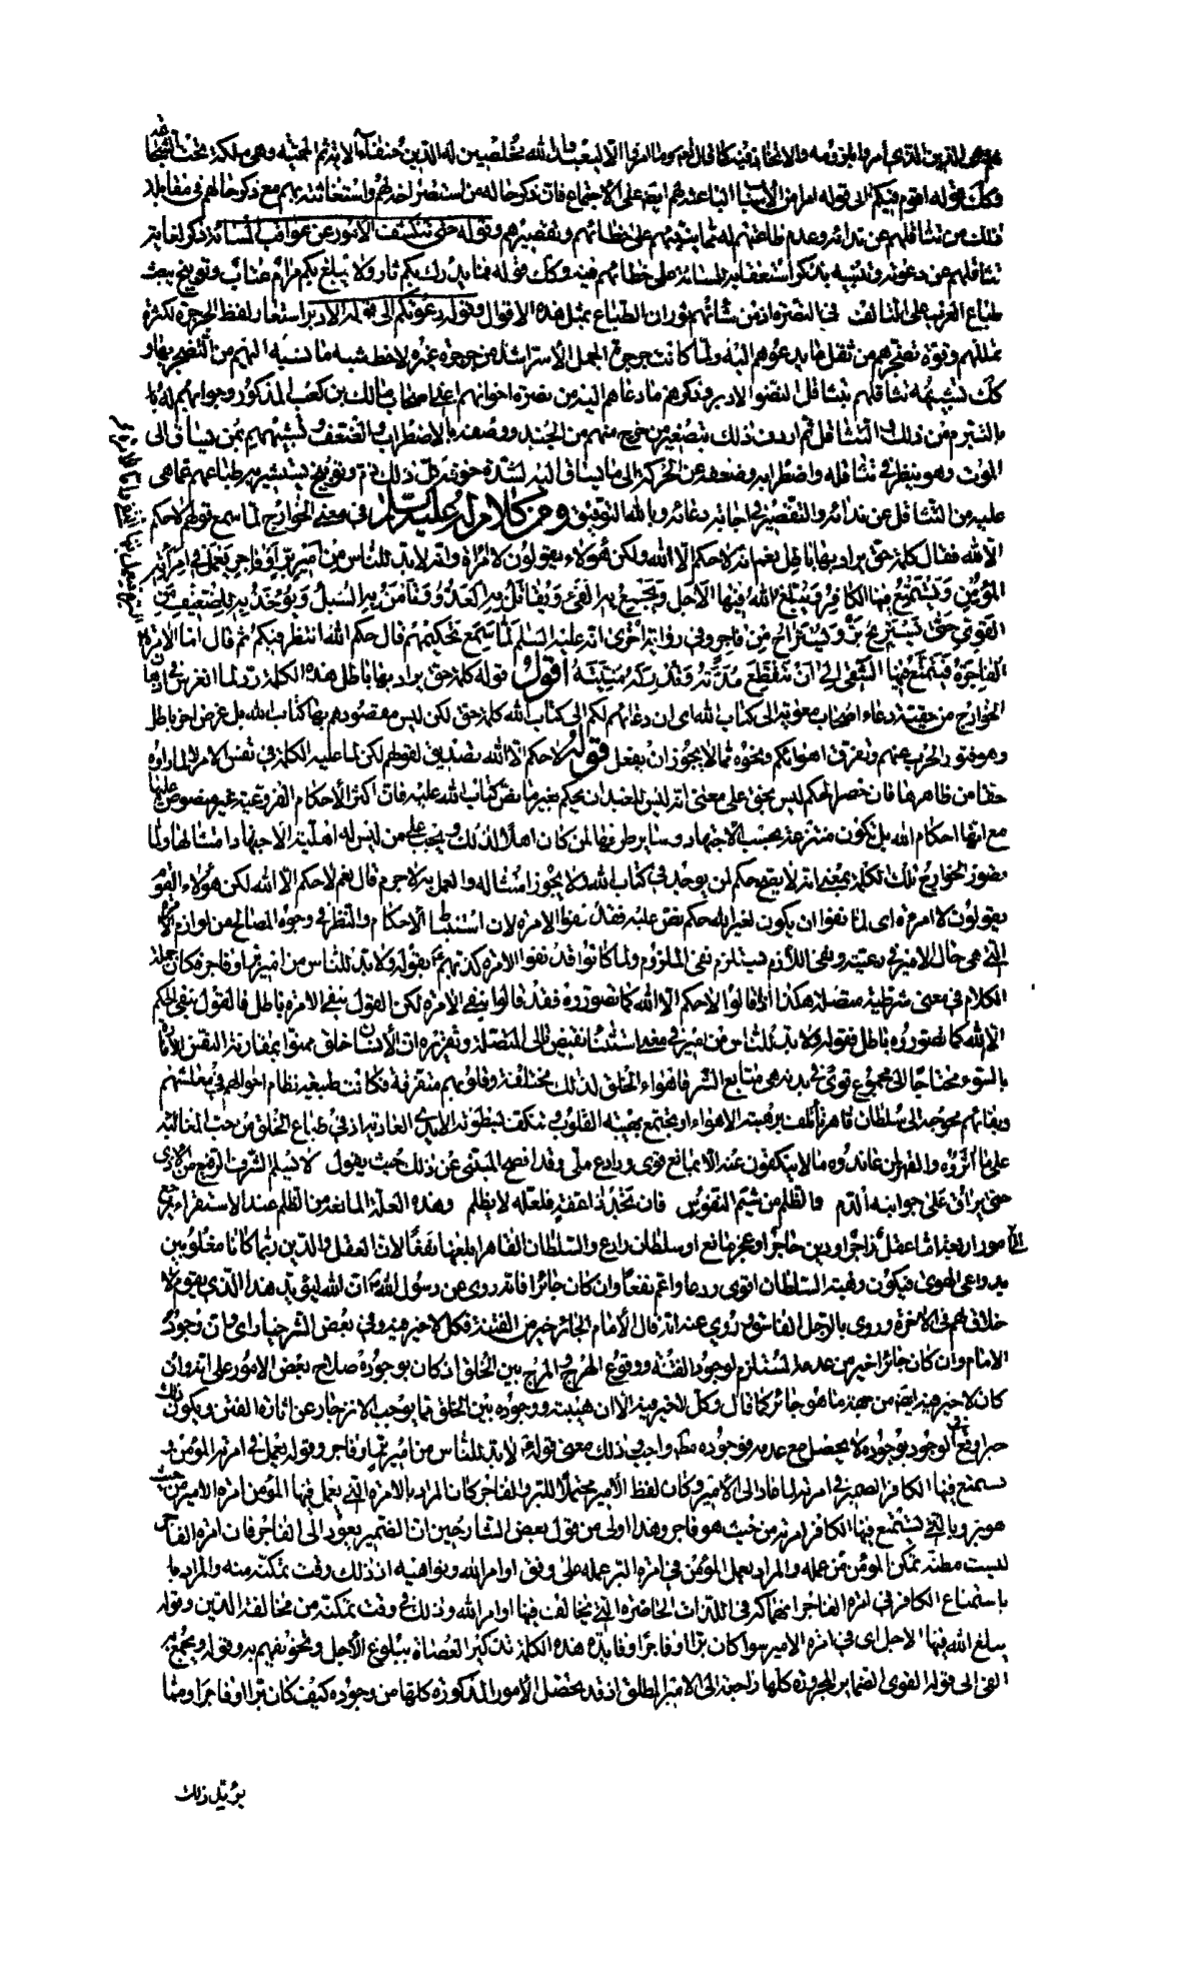 هو الدين الذي امروا بلزومه والاتحاد فيه كما قال تعالى وما امروا الا ليعبدوا الله مخلصين له الدين حنفاء الاية ثم الحمية وهى ملكة تحت الشجاعة
وكذلك قوله اقوم فيكم الى قوله امرا من الاسباب الباعثة لهم ايضا على الاجتماع فان ذكر حاله من استصراخه لهم واستغاثته بهم مع ذكر حالهم في مقابلة
ذلك من تثاقلهم عن ندائه وعدم طاعتهم له مما ينبههم على خطائهم وتقصيرهم وقوله حتى تنكشف الامور عن عواقب المساءة ذكر لغاية
تثاقلهم عن دعوته وتنبيه بذكر استعقابه للمساءة على خطائهم فيه وكذلك قوله فما يدرك بكم ثار ولا يبلغ بكم مرام عتاب وتوبيخ يبعث
طباع العرب على التآلف في النصرة اذ من شأنهم ثوران الطباع بمثل هذه الاقوال وقوله دعوتكم الى قوله الادبر استعار لفظ الجرجرة لكثرة
تململهم وقوة تضجرهم من ثقل ما يدعوهم اليه ولما كانت جرجرة الجمل الاسر اشد من جرجرة غيره لاحظ شبه ما نسبه اليهم من التضجر بها و
كذلك تشبيهه تثاقلهم بتثاقل النضو الادبر وذكرهم ما دعاهم اليه من نصرة اخوانهم اعنى اصحاب مالك بن كعب المذكور وجوابهم له
بالتبرم من ذلك والتثاقل ثم اردف ذلك بتصغير من خرج منهم من الجند ووصفه بالاضطراب والضعف وتشبيههم بمن يساق الى
الموت وهو ينظر في تثاقله واضطرابه وضعفه عن الحركة الى ما يساق اليه لشدة خوفه كل ذلك ذم وتوبيخ يستثير به طباعهم عما هي
عليه من التثاقل عن ندائه والتقصير في اجابة دعائه وبالله التوفيق ومن كلام له عليه السلام في معنى الخوارج لما سمع قولهم لا حكم
الا لله فقال كلمة حق يراد بها باطل نعم انه لا حكم الا الله ولكن هؤلاء يقولون لا امرة وانه لا بد للناس من امير بر او فاجر يعمل في امرته
المؤمن ويستمتع فيها الكافر ويبلغ الله فيها الاجل ويجمع به الفىء ويقاتل به العدو وتأمن به السبل ويؤخذ به للضعيف من
القوي حتى يستريح بر ويستراح من فاجر وفي رواية اخرى انه عليه السلم لما سمع تحكيمهم قال حكم الله انتظر فيكم ثم قال اما الامرة
الفاجرة فيتمتع فيها الشقى الى ان تنقطع مدته وتدركه منيته اقول قوله كلمة حق يراد بها باطل هذه الكلمة رد لما
الخوارج من حقية دعاء اصحاب معوية الى كتاب الله اى ان دعائهم لكم الى كتاب الله كلمة حق لكن ليس مقصودهم بها كتاب الله بل غرض اخر باطل
وهو فتور الحرب عنهم وتفرق اهوائكم ونحوه مما لا يجوز ان يفعل قوله لا حكم الا لله تصديق لقولهم لكن لما عليه الكلمة في نفس الامر لا لما راوه
حقا من ظاهرها فان حصر الحكم ليس بحق على معنى انه ليس للعبد ان يحكم بغير ما نص كتاب الله عليه فان اكثر الاحكام الفروعية غير منصوص عليها
مع انها احكام الله بل تكون منتزعة بحسب الاجتهاد وساير طرقها لمن كان اهلا لذلك ويجب على من ليس له اهلية الاجتهاد امتثالها ولما
تصور الخوارج تلك الكلمة بمعنى انه لا يصح حكم لم يوجد في كتاب الله ولا يجوز امتثاله والعمل به لا جرم قال نعم لا حكم الا الله لكن هؤلاء القوم
يقولون لا امرة اى لما نفوا ان يكون لغير الله حكم نص عليه فقد نفوا الامرة لان استنباط الاحكام والنظر في وجوه المصالح من لوازم
التي هي حال الامير في رعيته ونفى اللازم يستلزم نفى الملزوم ولما كانوا قد نفوا الامرة كذبهم بقوله ولا بد للناس من امير بر او فاجر فكان جملة
الكلام في معنى شرطية متصلة هكذا اذا قالوا لا حكم الا لله كما تصوروه فقد قالوا بنفى الامرة لكن القول بنفى الامرة باطل فالقول بنفى الحكم
الا لله كما تصوروه باطل فقوله ولا بد للناس من امير في معنى استثناء نقيض تالى المتصلة وتقريره ان الانسان خلق ممنوا بمقارنة النفس الامارة
بالسوء محتاجا الى مجموع قوى في بدنه هي منابع الشر فاهواء الخلق لذلك مختلفة وقلوبهم متفرقة فكانت طبيعة نظام احوالهم في معاشهم
وبقائهم محوجة الى سلطان قاهر تأتلف برهبته الاهواء وتجتمع بهيبته القلوب وتنكف بسطوته الايدى العادية اذ في طباع الخلق من حب المغالبة
على ما آثروه والقهر لمن عاندوه ما لا ينكفون عنه الا بمانع قوى ورادع ملى وقد افصح المتنبى عن ذلك حيث يقول لا يسلم الشرف الرفيع من الاذى
حتى يراق على جوانبه الدم والظلم من شيم النفوس فان تجد ذا عفة فلعلة لا يظلم وهذه العلة المانعة من الظلم عند الاستقراء يرجع
الى امور اربعة اما عقل زاجر او دين حاجز او عجز مانع او سلطان رادع والسلطان القاهر ابلغها نفعا لان العقل والدين ربما كانا مغلوبين
بدواعى الهوى فيكون رهبة السلطان اقوى ردعا واعم نفعا وان كان جائرا فانه روى عن رسول الله ان الله ليؤيد هذا الدين بقوم لا
خلاق لهم في الاخرة وروى بالرجل الفاسق وروي عنه انه قال الامام الجائر خير من الفتنة فكل لا خير فيه وفي بعض الشر خيار اى وان وجود
الامام وان كان جائرا خير من عدمه المستلزم لوجود الفتنة ووقوع الهرج والمرج بين الخلق اذ كان بوجوده صلاح بعض الامور على انه وان
كان لا خير فيه ايضا من جهة ما هو جائر كما قال وكل لا خير فيه الا ان هيبته ووجوده بين الخلق مما يوجب الانزجار عن اثارة الفتن ويكون ذلك
خيرا وقع في الوجود بوجوده لا يحصل مع عدمه فوجوده مطلقا واجب وذلك معنى قوله لا بد للناس من امير بر او فاجر وقوله يعمل في امرته المؤمن و
يستمتع فيها الكافر الضمير في امرته لما عاد الى الامير وكان لفظ الامير محتملا للبر والفاجر كان المراد بالامرة التي يعمل فيها المؤمن امرة الامير من حيث
هو بر وبالتي يستمتع فيها الكافر امرته من حيث هو فاجر وهذا اولى من قول بعض الشارحين ان الضمير يعود الى الفاجر فان امرة الفاجر
ليست مظنة تمكن المؤمن من عمله والمراد بعمل المؤمن في امرة البر عمله على وفق اوامر الله ونواهيه اذ ذلك وقت تمكنه منه والمراد
باستمتاع الكافر في امرة الفاجر انهماكه في اللذات الحاضرة التي يخالف فيها اوامر الله وذلك في وقت تمكنه من مخالفة الدين وقوله
يبلغ الله فيها الاجل اى في امرة الامير سواء كان برا او فاجرا وفايدة هذه الكلمة تذكير العصاة ببلوغ الاجل وتخويفهم به وقوله ويجمع به
الفئ الى قوله القوى الضماير المجرورة كلها راجعة الى الامير المطلق اذ قد يحصل الامور المذكورة كلها من وجوده كيف كان برا او فاجرا ومما
يؤيد ذلك